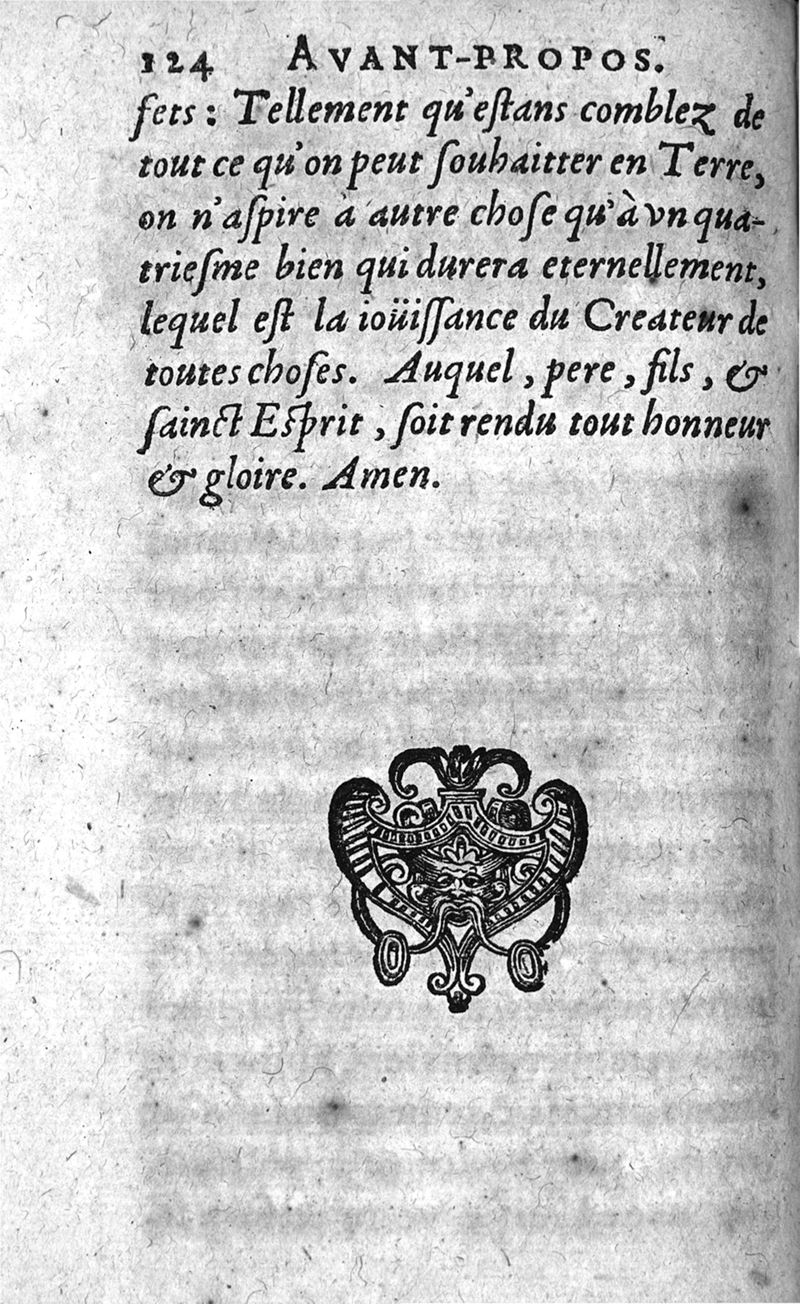 124 AVANT-PROPOS.
fets : Tellement qu'eſtans comblez de
tout ce qu'on peut ſouhaitter en Terre,
on n'aſpire à autre choſe qu'à vn qua-
trieſme bien qui durera eternellement,
lequel eſt la ioüiſſance du Createur de
toutes choſes. Auquel, pere, fils, &
ſainct Eſprit, ſoit rendu tout honneur
& gloire. Amen.